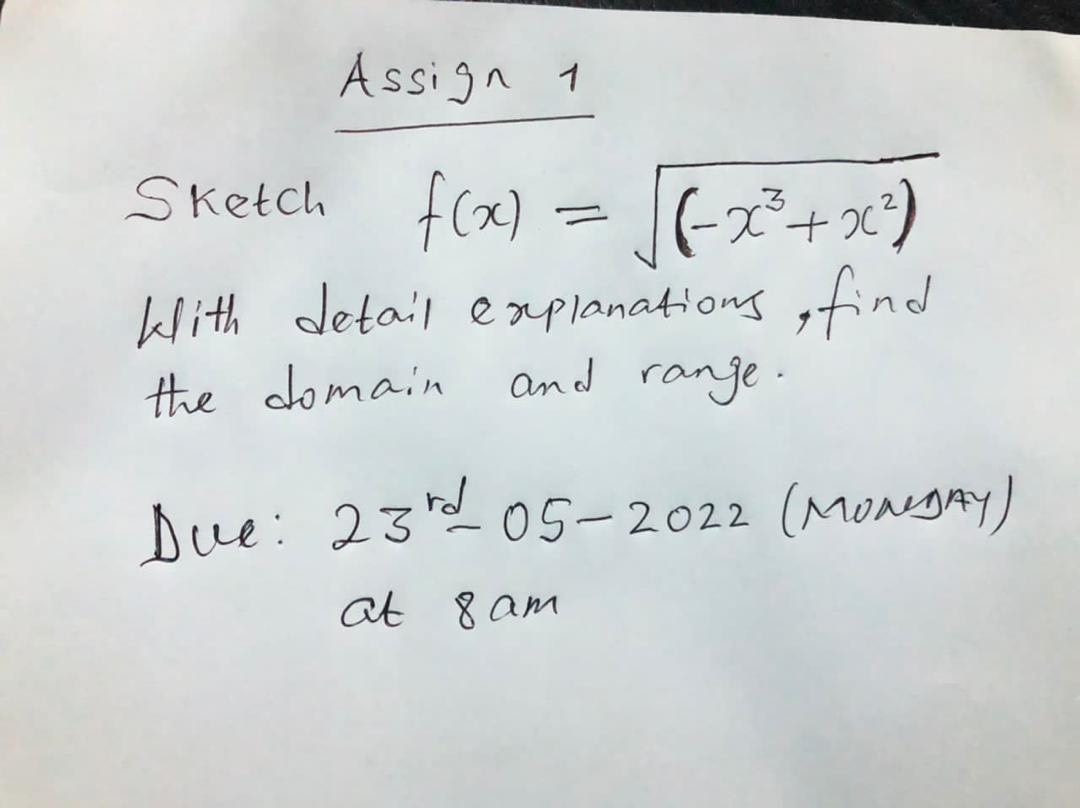 Assign 1
Sketch f(x) = √(-x³+x²)
With detail explanations, find
the domain and range.
Due: 23rd-05-2022 (MONDAY)
at 8am